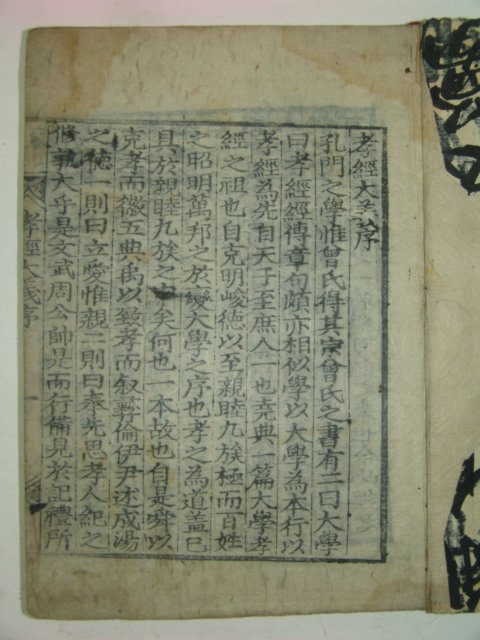 孝經大義序
孔門之學惟曾氏得其宗曾氏之書有二曰大學
曰孝經經傳章句頗亦相似學以大學為本行以
孝經為先自天子至庶人一也堯典一篇大學孝
經之祖也自克明峻德以至親睦九族極而百姓
之昭明萬邦之於變大學之序也孝之為道蓋已
具於親睦九族之中矣何也一本故也自是舜以
克孝而徽五典禹以致孝而叙彛倫伊尹述成湯
之德一則曰立愛惟親二則曰奉先思孝人紀之
修孰大乎是文武周公帥是而行備見於記禮所
孝經大義序